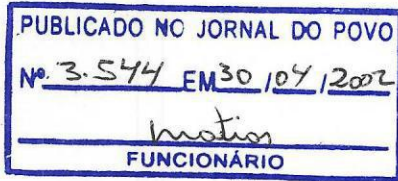 PUBLICADO NO JORNAL DO POVO
Nº 3.544 EM 30 / 04 / 2002
FUNCIONÁRIO